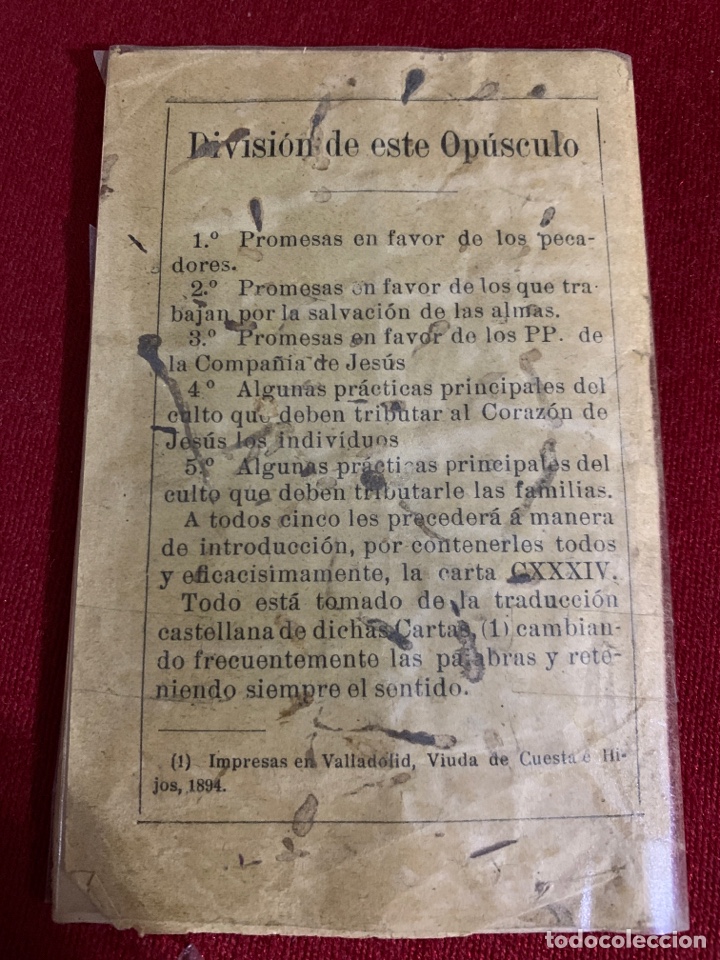 División de este Opúsculo
1.º Promesas en favor de los peca-
dores.
2.º Promesas en favor de los que tra-
bajan por la salvación de las almas.
3.º Promesas en favor de los PP. de
la Compañia de Jesús
4.º Algunas prácticas principales del
culto que deben tributar al Corazón de
Jesús los indivíduos
5.º Algunas prácticas principales del
culto que deben tributarle las familias.
A todos cinco les precederá á manera
de introducción, por contenerles todos
y eficacisimamente, la carta CXXXIV.
Todo está tomado de la traducción
castellana de dichas Cartas, (1) cambian-
do frecuentemente las palabras y rete-
niendo siempre el sentido.
(1) Impresas en Valladolid, Viuda de Cuesta é Hi-
jos, 1894.
todocoleccion